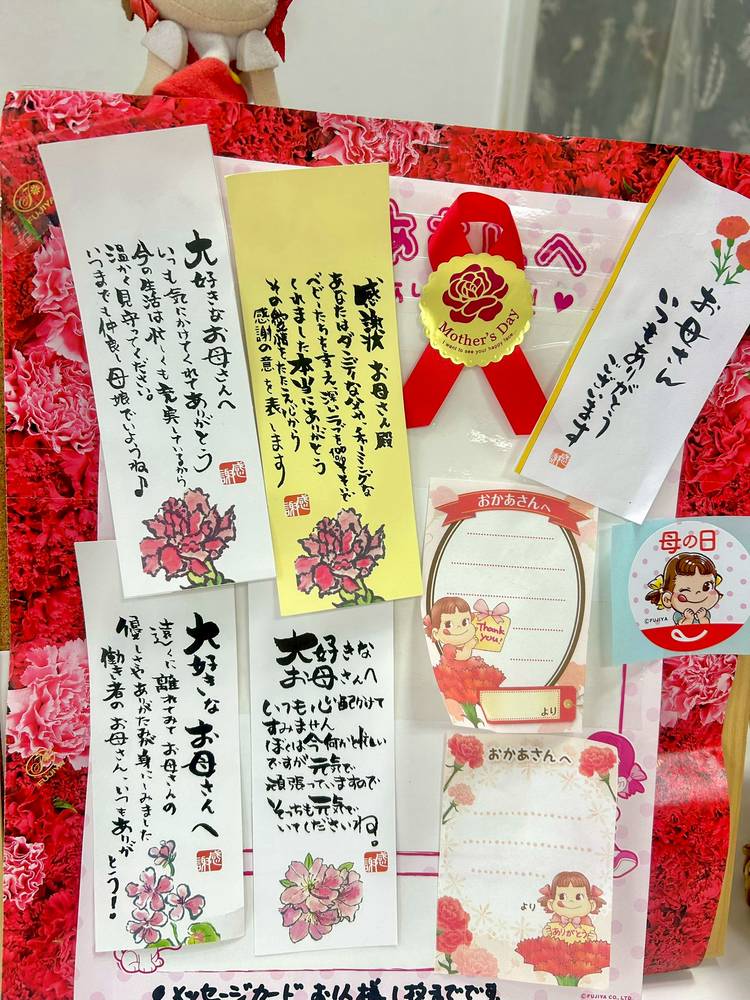 大好きなお母さんへ
いつも気にかけてくれてありがとう
今の生活は忙しくも充実しているから
温かく見守ってください。
いつまでも仲良し母娘でいようね♪
感謝
感謝状 お母さん殿
あなたはダンディなパパ、チャーミングな
ベビーたちを支え、深いラブを100%そそいで
くれました 本当にありがとう
その愛情をたたえ心から
感謝の意を表します
感謝
Mother's Day
I want to see your happy face.
お母さん
いつもありがとう
ございます
感謝
大好きなお母さんへ
遠くに離れてみてお母さんの
優しさやありがたさ身にしみました
働き者のお母さん、いつもありが
とう!
感謝
大好きな
お母さんへ
いつも心配かけて
すみません
ぼくは今何かと忙しい
ですが元気で
頑張っていますので
そっちも元気で
いてくださいね。
感謝
おかあさんへ
Thank you!
より
母の日
©FUJIYA
おかあさんへ
より
ありがとう
FUJIYA
メッセージカード お1人様1枚までです
©FUJIYA CO., LTD.